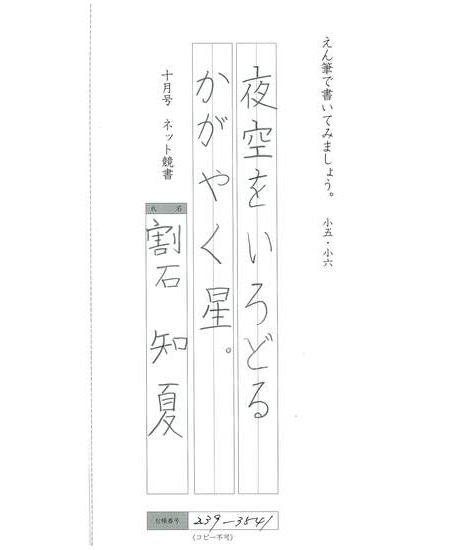 えん筆で書いてみましょう。 小五・小六
夜空をいろどる
かがやく星。
十月号 ネット競書
氏名
割石 知夏
お帳番号 239-3541
(コピー不可)